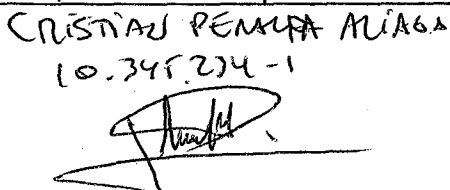 CRISTIAN PEÑALFA ALIAGA
10.345.234-1